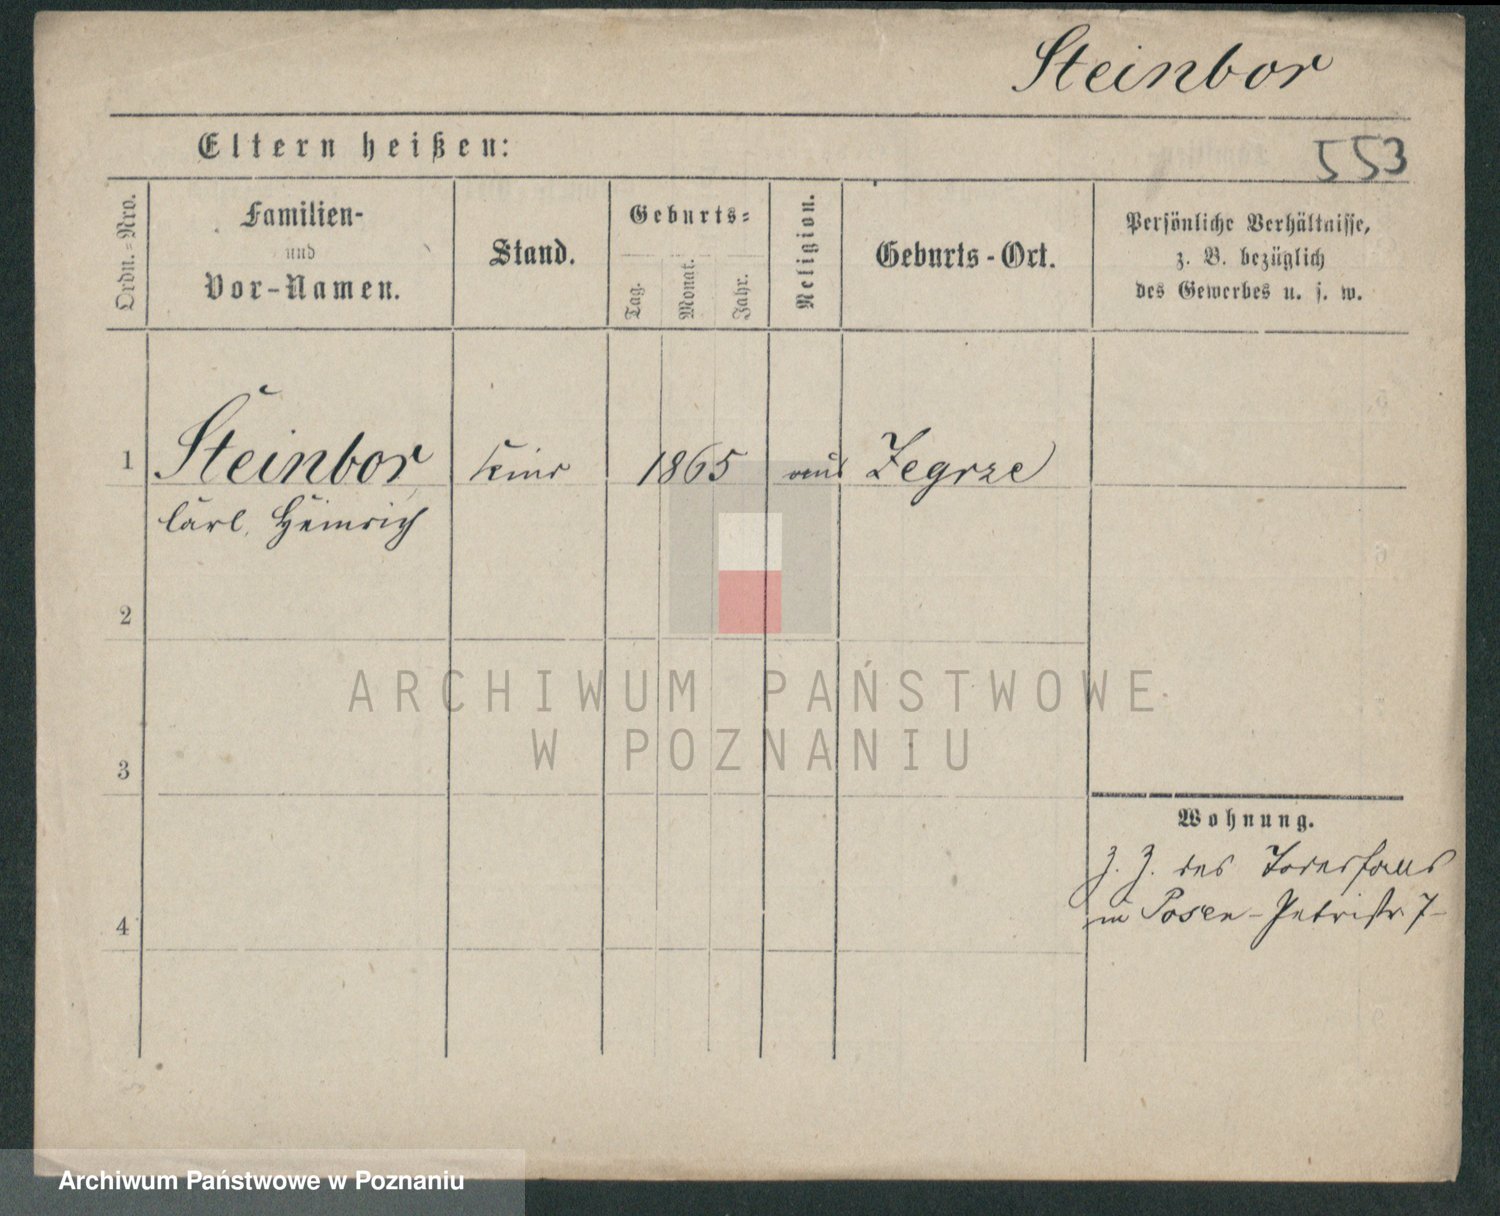 Steinbor
Eltern heißen:
553
Ordn.=Nro.
Familien-
und
Vor-Namen.
Stand.
Geburts=
Tag.
Monat.
Jahr.
Religion.
Geburts-Ort.
Persönliche Verhältnisse,
z. B. bezüglich
des Gewerbes u. s. w.
1 Steinbor Kind 1865 Zegrze
Carl, Heinrich
2
3
4
Wohnung.
z. Z. des Todesfalles
in Posen - Petristr 7-
ARCHIWUM PAŃSTWOWE
W POZNANIU
Archiwum Państwowe w Poznaniu